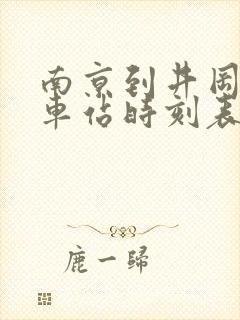 南京到井岡
車站時刻表
鹿一歸